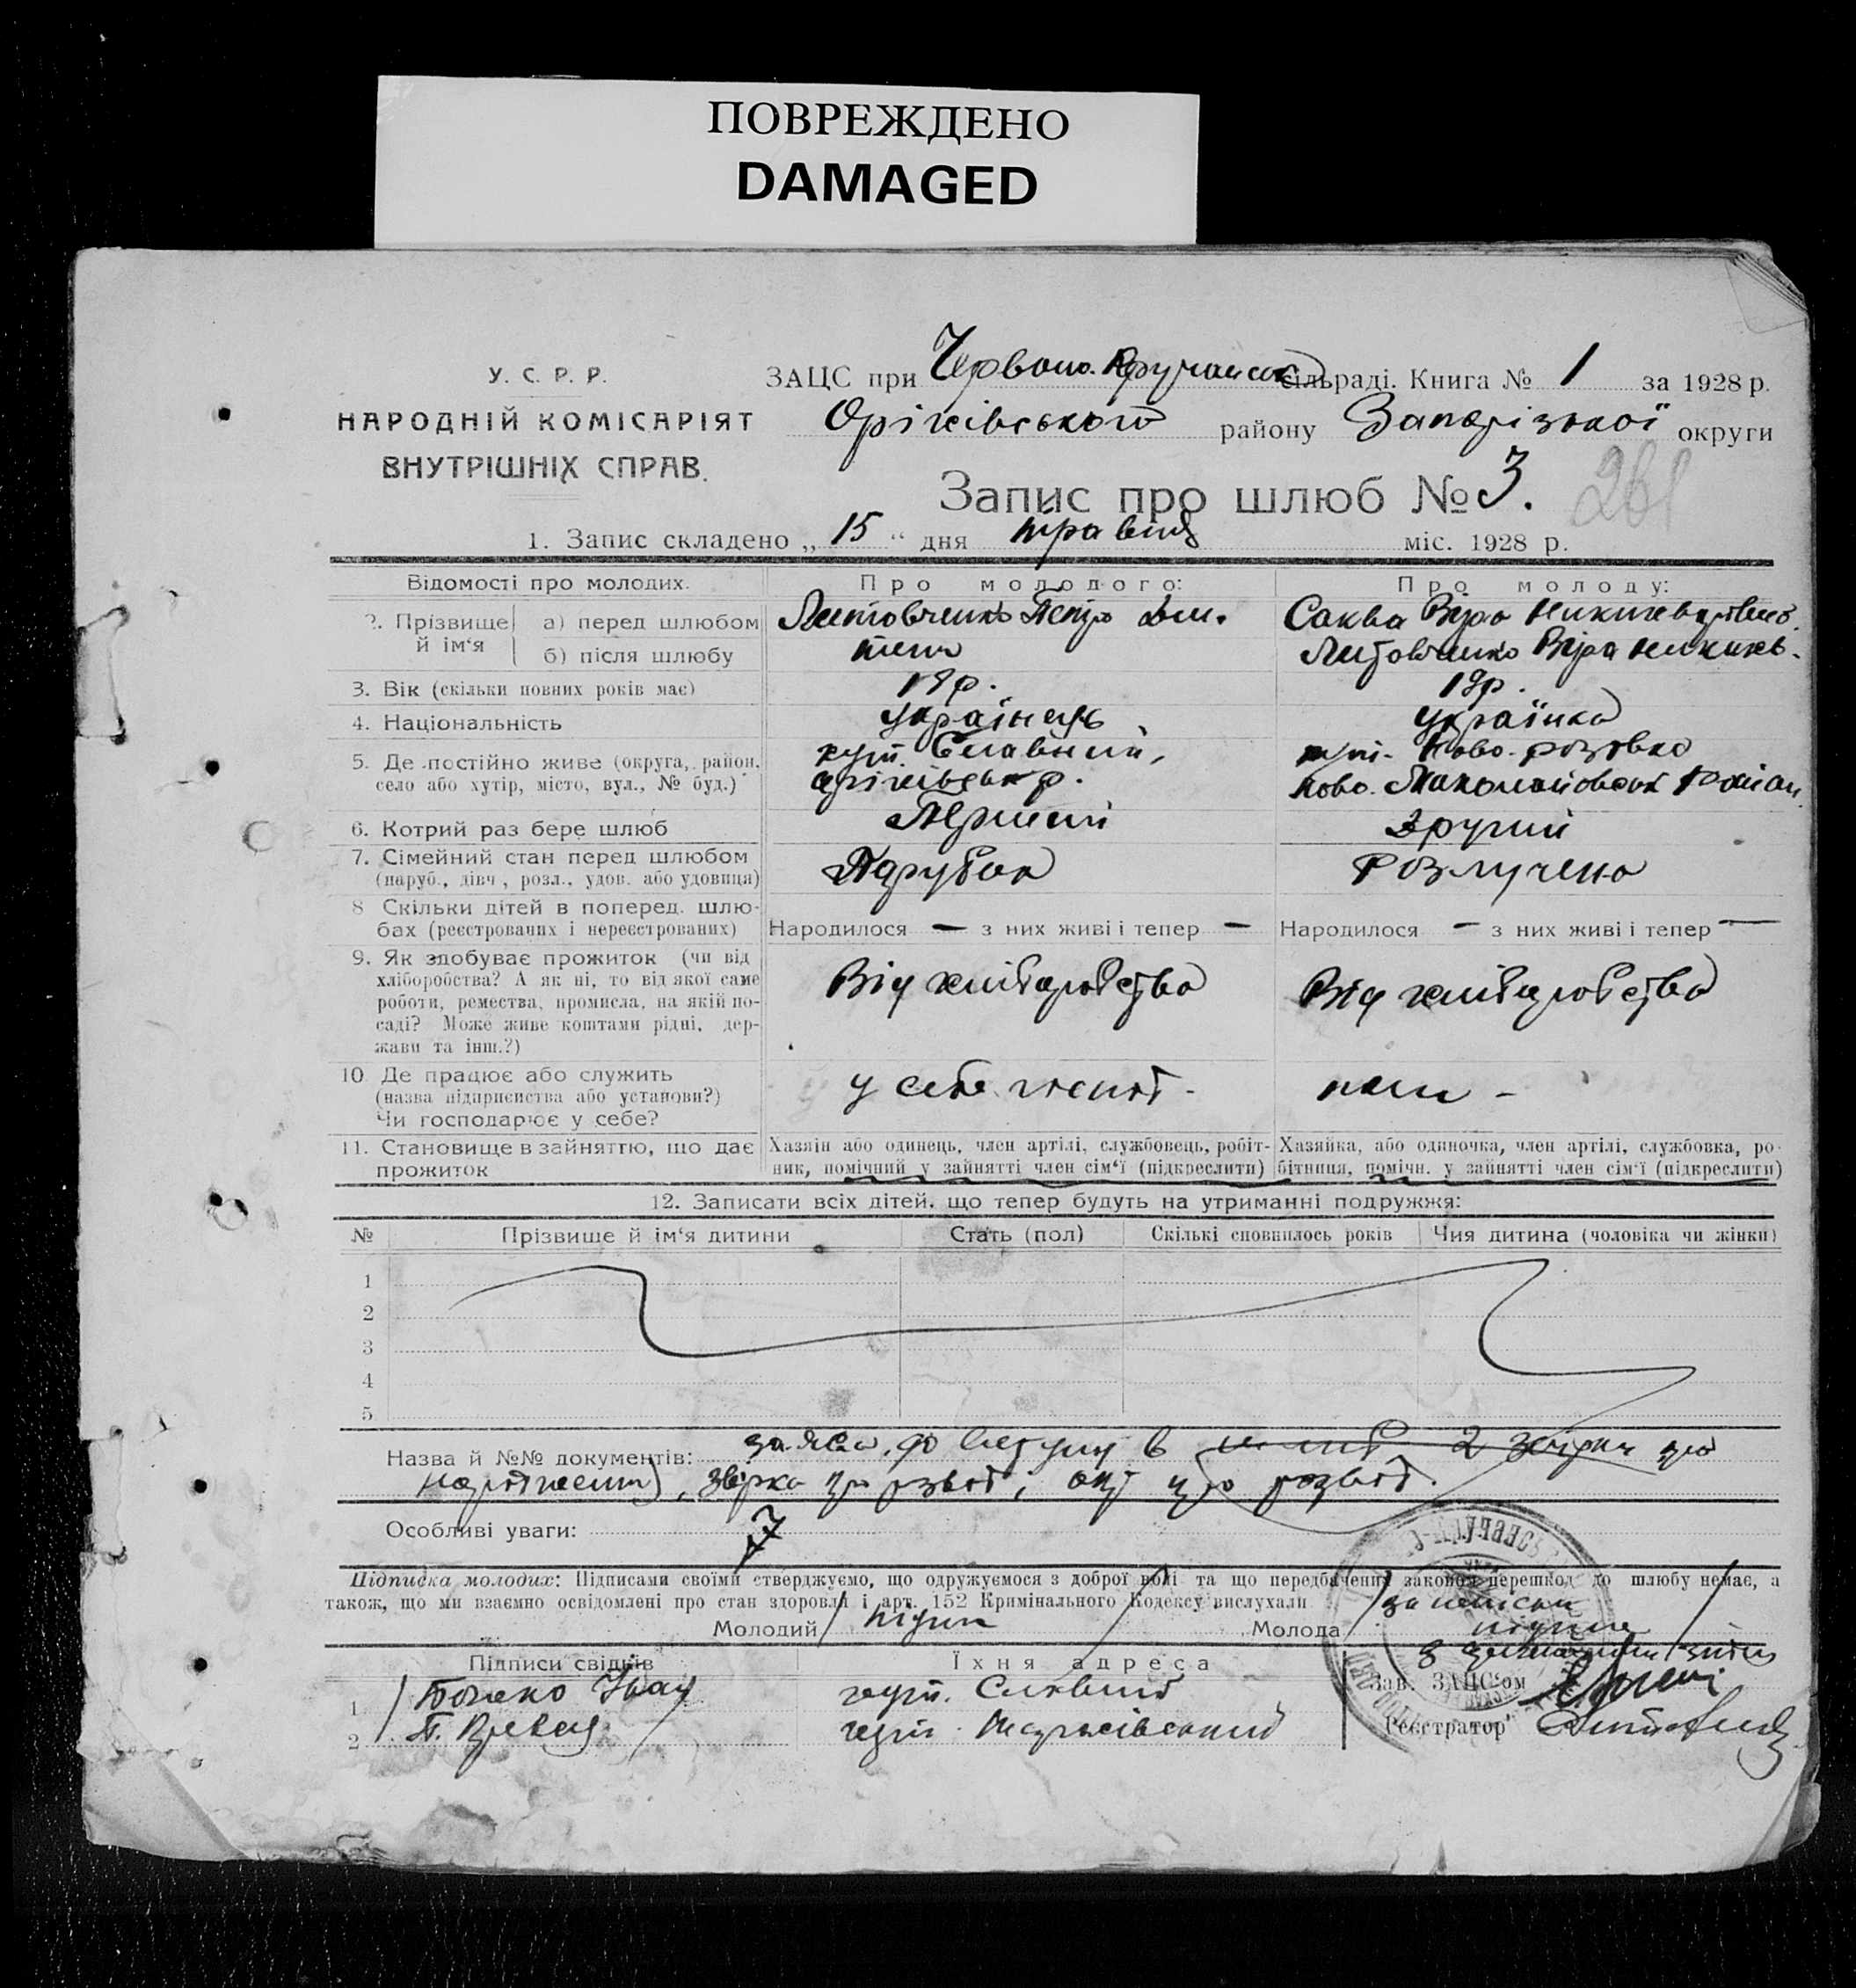 ПОВРЕЖДЕНО
DAMAGED
У. С. Р. Р.
НАРОДНІЙ КОМІСАРІЯТ
ВНУТРІШНІХ СПРАВ.
ЗАЦС при Червоно. сільраді. Книга № 1 за 1928 р.
Оріхівського району Запорізької округи
Запис про шлюб № 3.
261
1. Запис складено „ 15 “ дня травня міс. 1928 р.
Відомості про молодих. Про молодого: Про молоду:
2. Прізвище й ім‘я
а) перед шлюбом Литовченко Петро Саква Віра
б) після шлюбу Литовченко Віра
3. Вік (скільки повних років має) 19 р. 19 р.
4. Національність Українець Українка
5. Де постійно живе (округа, район, хут. Славний, хут. Ново-
село або хутір, місто, вул., № буд.) оріхівськ р. Ново. район
6. Котрий раз бере шлюб Перший другий
7. Сімейний стан перед шлюбом Парубок Розлучена
(паруб., дівч., розл., удов. або удовиця)
8 Скільки дітей в поперед. шлю-
бах (реєстрованих і нереєстрованих) Народилося — з них живі і тепер — Народилося — з них живі і тепер —
9. Як здобуває прожиток (чи від
хліборобства? А як ні, то від якої саме Від хліборобства Від хліборобства
роботи, ремества, промисла, на якій по-
саді? Може живе коштами рідні, дер-
жави та інш.?)
10 Де працює або служить у себе
(назва підприємства або установи?)
Чи господарює у себе?
11. Становище в зайняттю, що дає Хазяїн або одинець, член артілі, службовець, робіт- Хазяйка, або одиночка, член артілі, службовка, ро-
прожиток ник, помічний у зайнятті член сім‘ї (підкреслити) бітниця, помічн. у зайнятті член сім‘ї (підкреслити)
12. Записати всіх дітей, що тепер будуть на утриманні подружжя:
№ Прізвище й ім‘я дитини Стать (пол) Скількі сповнилось років Чия дитина (чоловіка чи жінки)
1
2
3
4
5
Назва й №№ документів: заява до вступу в 2 про
про розвод, акт про розвод.
Особливі уваги:
Підписка молодих: Підписами своїми стверджуємо, що одружуємося з доброї волі та що передбачених законом перешкод до шлюбу немає, а
також, що ми взаємно освідомлені про стан здоровля і арт. 152 Кримінального Кодексу вислухали
Молодий Молода
Підписи свідків Їхня адреса Зав. ЗАЦС‘ом
1 Іван хут. Славний
2 П. хут. Реєстратор